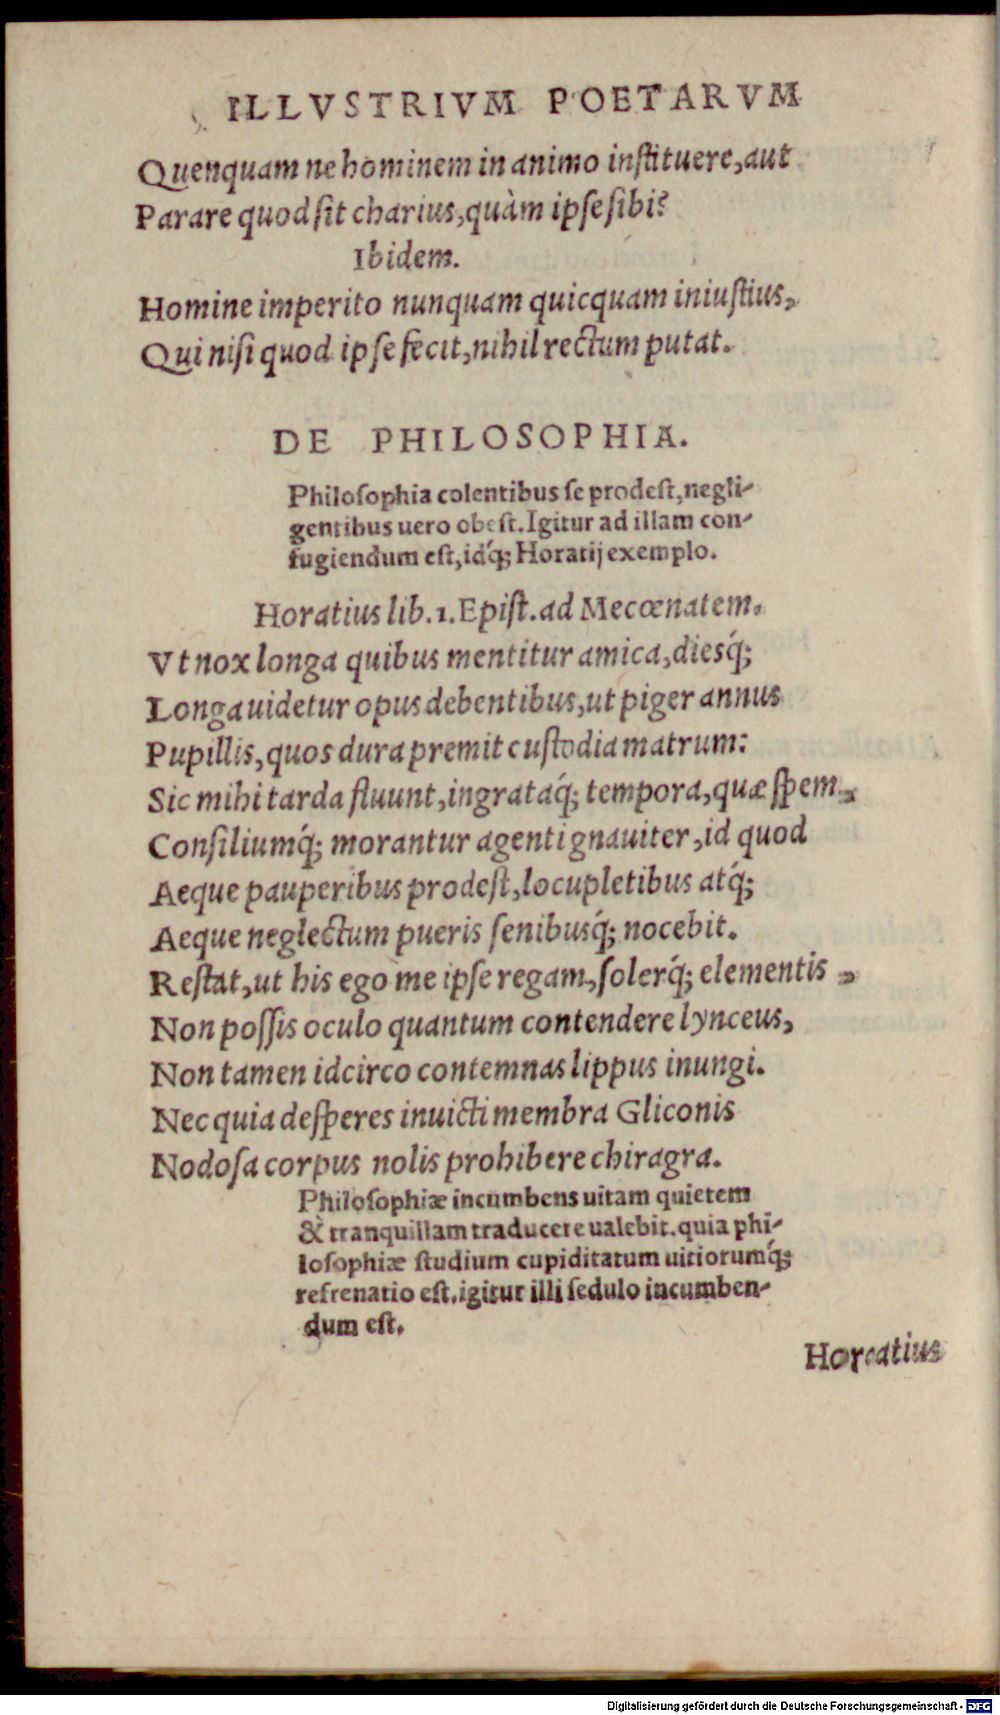 ILLVSTRIVM POETARVM
Quenquam ne hominem in animo inſtituere, aut
Parare quod ſit charius, quàm ipſe ſibi?
Ibidem.
Homine imperito nunquam quicquam iniuſtius,
Qui niſi quod ipſe fecit, nihil rectum putat.
DE PHILOSOPHIA.
Philoſophia colentibus ſe prodeſt, negli-
gentibus uero obeſt. Igitur ad illam con-
fugiendum eſt, idq́; Horatij exemplo.
Horatius lib. 1. Epiſt. ad Mecœnatem.
Vt nox longa quibus mentitur amica, diesq́;
Longa uidetur opus debentibus, ut piger annus
Pupillis, quos dura premit cuſtodia matrum:
Sic mihi tarda fluunt, ingrataq́; tempora, quæ ſpem,
Conſiliumq́; morantur agenti gnauiter, id quod
Aeque pauperibus prodeſt, locupletibus atq́;
Aeque neglectum pueris ſenibusq́; nocebit.
Reſtat, ut his ego me ipſe regam, ſolerq́; elementis,
Non poſſis oculo quantum contendere lynceus,
Non tamen idcirco contemnas lippus inungi.
Nec quia deſperes inuicti membra Gliconis
Nodoſa corpus nolis prohibere chiragra.
Philoſophiæ incumbens uitam quietem
& tranquillam traducere ualebit. quia phi-
loſophiæ ſtudium cupiditatum uitiorumq́;
refrenatio eſt. igitur illi ſedulo incumben-
dum eſt.
Horatius
Digitalisierung gefördert durch die Deutsche Forschungsgemeinschaft - DFG